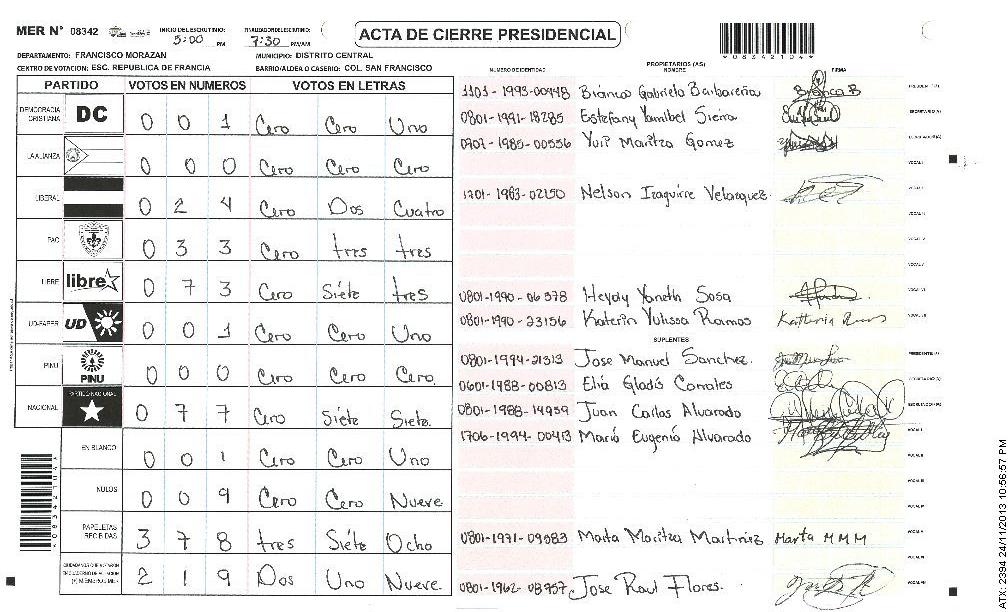 MER N° 08342 INICIO DEL ESCRUTINIO: 5:00 PM FINALIZACION ESCRUTINIO: 7:30 PM/AM
ACTA DE CIERRE PRESIDENCIAL
*08342104*
DEPARTAMENTO: FRANCISCO MORAZAN MUNICIPIO: DISTRITO CENTRAL
CENTRO DE VOTACION: ESC. REPUBLICA DE FRANCIA BARRIO/ALDEA O CASERIO: COL. SAN FRANCISCO
PARTIDO VOTOS EN NUMEROS VOTOS EN LETRAS
DEMOCRACIA CRISTIANA DC 0 0 1 Cero Cero Uno
LA ALIANZA 0 0 0 Cero Cero Cero
LIBERAL 0 2 4 Cero Dos Cuatro
PAC 0 3 3 Cero tres tres
LIBRE libre 0 7 3 Cero Siete tres
UD-FAPER UD 0 0 1 Cero Cero Uno
PINU PINU 0 0 0 Cero Cero Cero
NACIONAL PARTIDO NACIONAL 0 7 7 Cero Siete Siete.
EN BLANCO 0 0 1 Cero Cero Uno
NULOS 0 0 9 Cero Cero Nueve
PAPELETAS RECIBIDAS 3 7 8 tres Siete Ocho
CIUDADANOS QUE VOTARON 2 1 9 Dos Uno Nueve.
NUMERO DE IDENTIDAD PROPIETARIOS (AS) NOMBRE FIRMA
Bianca Gabriela Barbareña Bianca B PRESIDENTE (A)
0801-1991-18285 Estefany Yamibel Sierra SECRETARIO (A)
0907-1985-00556 Yuri Maritza Gomez ESCRUTADOR (A)
VOCAL I
1701-1983-02150 Nelson Izaguirre Velasquez VOCAL II
VOCAL III
VOCAL IV
VOCAL V
0801-1990-06378 Heydy Yaneth Sosa VOCAL VI
0801-1990-23156 Katerin Yulissa Ramos VOCAL VII
SUPLENTES
0801-1994-21313 Jose Manuel Sanchez. PRESIDENTE (A)
0601-1988-00813 Elia Gladis Corrales SECRETARIO (A)
0801-1988-14959 Juan Carlos Alvarado ESCRUTADOR (A)
1706-1994-00413 Mario Eugenio Alvarado VOCAL I
VOCAL II
VOCAL III
VOCAL IV
0801-1971-09083 Marta Maritza Martinez Marta M M M VOCAL V
VOCAL VI
0801-1962-08957 Jose Raul Flores. VOCAL VII
ATX: 2394 24/11/2013 10:56:57 PM